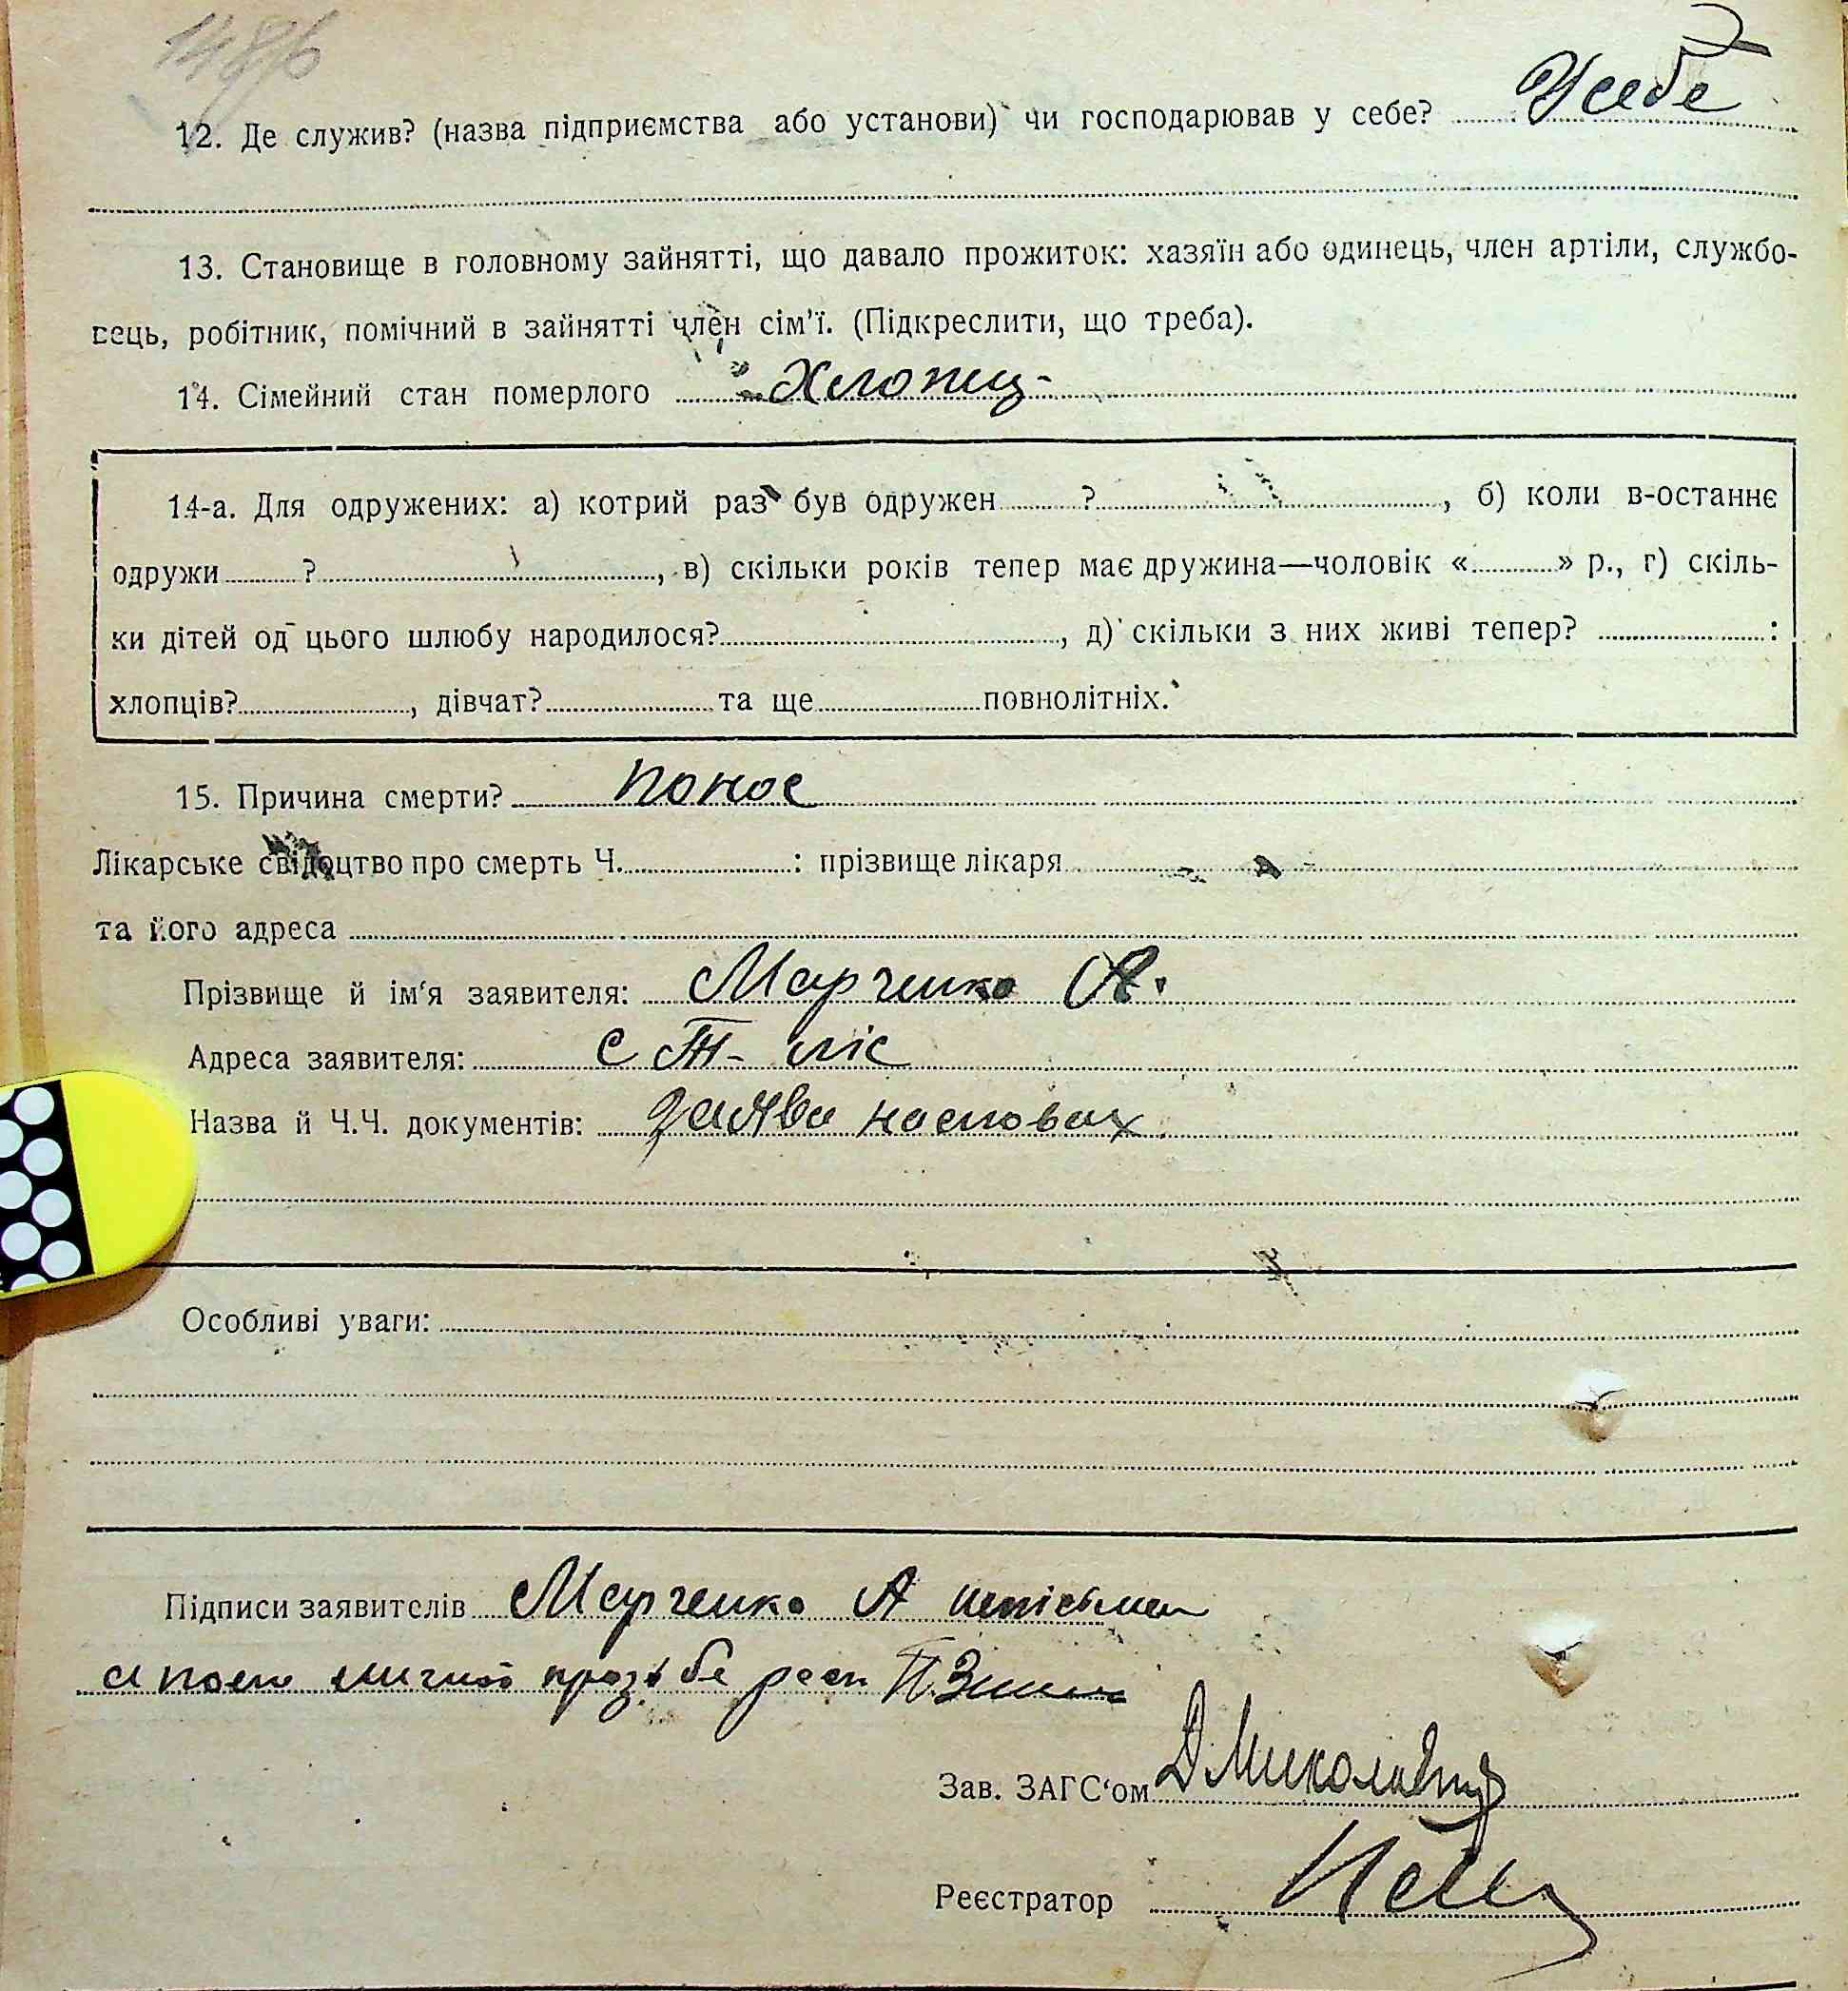 148б
12. Де служив? (назва підприємства або установи) чи господарював у себе? У себе
13. Становище в головному зайнятті, що давало прожиток: хазяїн або одинець, член артіли, службо-
вець, робітник, помічний в зайнятті член сім'ї. (Підкреслити, що треба).
14. Сімейний стан померлого Хлопец
14-а. Для одружених: а) котрий раз був одружен ?, б) коли в-останнє
одружи ?, в) скільки років тепер має дружина—чоловік « » р., г) скіль-
ки дітей од цього шлюбу народилося?, д) скільки з них живі тепер? :
хлопців?, дівчат? та ще повнолітніх.
15. Причина смерти? понос
Лікарське свідоцтво про смерть Ч. : прізвище лікаря
та його адреса
Прізвище й ім'я заявителя: Марченко А.
Адреса заявителя: с
Назва й Ч.Ч. документів: заява на словах
Особливі уваги:
Підписи заявителів Марченко А неписьмен
а по личной прозьбе
Зав. ЗАГС'ом
Реєстратор